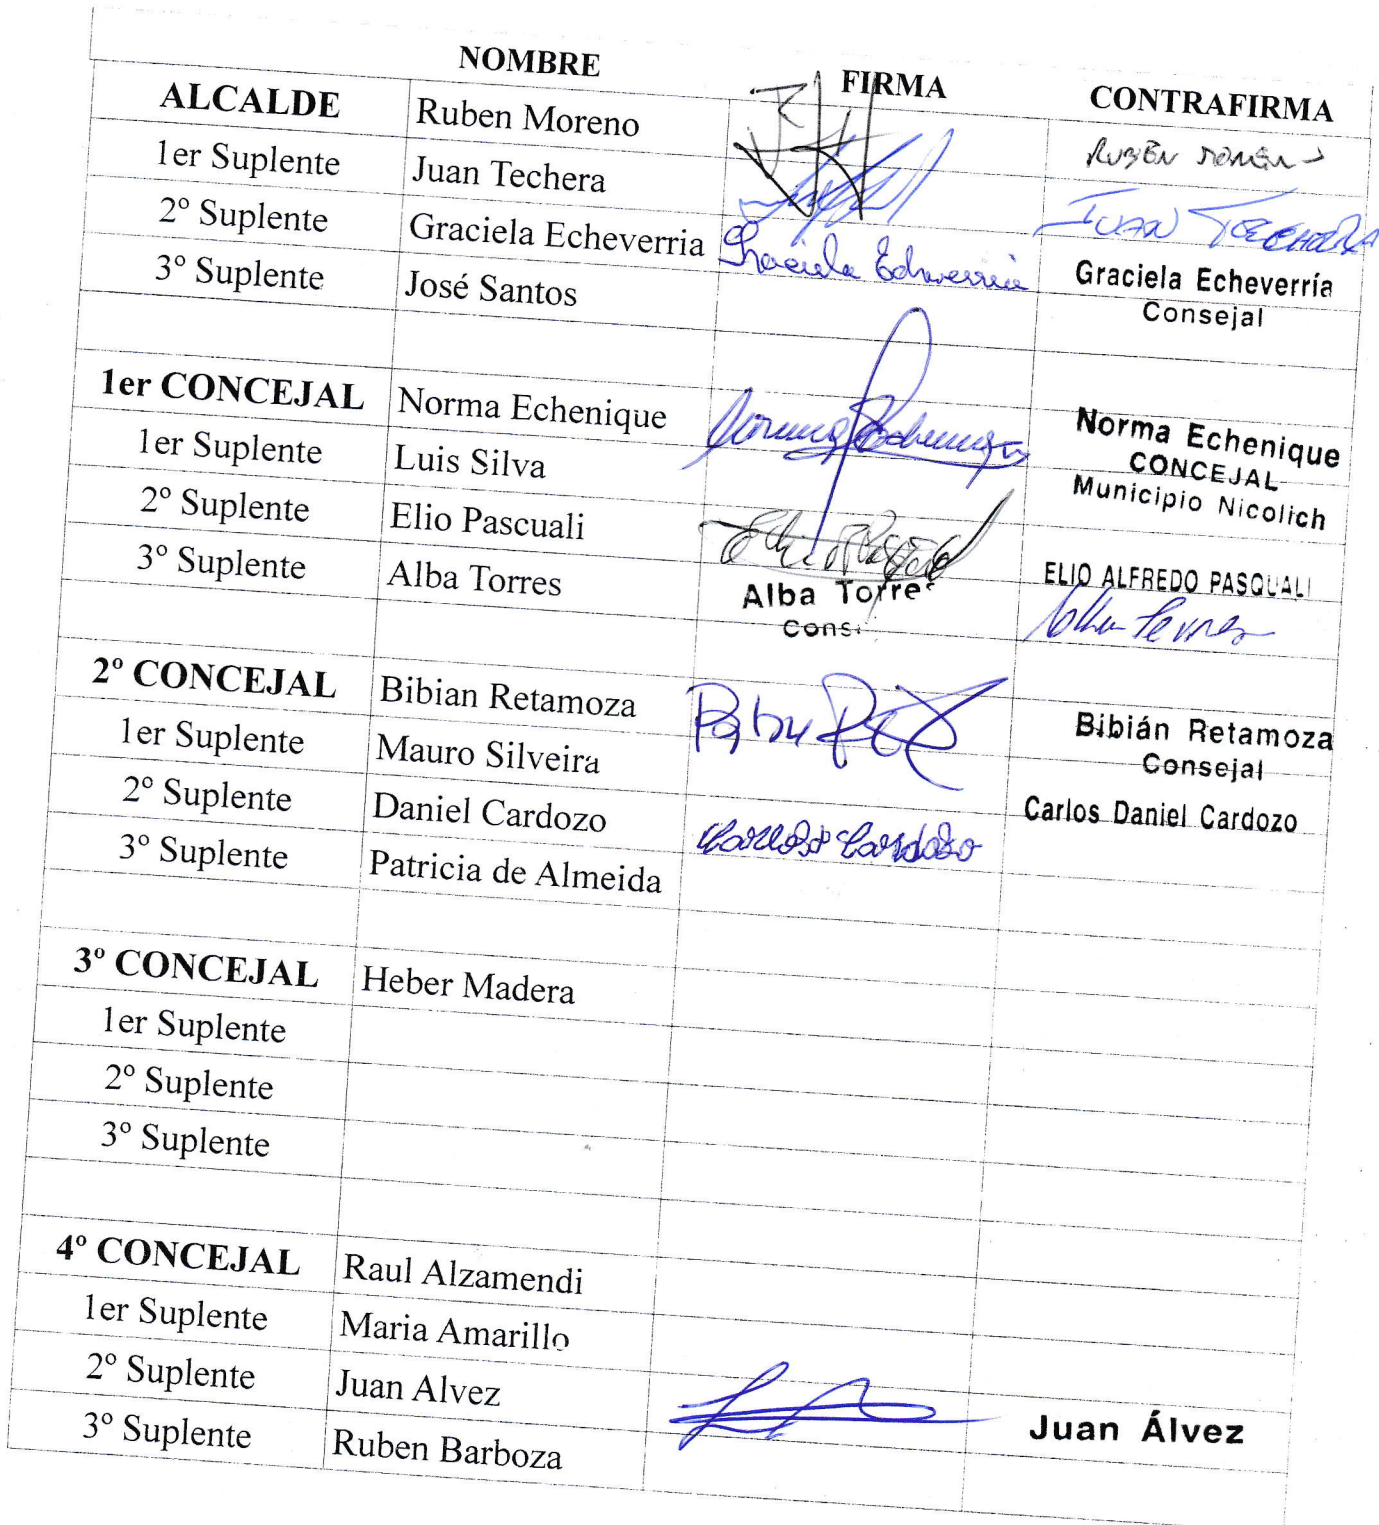 NOMBRE FIRMA CONTRAFIRMA
ALCALDE Ruben Moreno RUBÉN MORENO
1er Suplente Juan Techera JUAN TECHERA
2º Suplente Graciela Echeverria Graciela Echeverria Graciela Echeverría
Consejal
3º Suplente José Santos
1er CONCEJAL Norma Echenique Norma Echenique Norma Echenique
CONCEJAL
Municipio Nicolich
1er Suplente Luis Silva
2º Suplente Elio Pascuali ELIO ALFREDO PASQUALI
3º Suplente Alba Torres Alba Torres Alba Torres
Cons
2º CONCEJAL Bibian Retamoza Bibián Retamoza
Consejal
1er Suplente Mauro Silveira
2º Suplente Daniel Cardozo Carlos Cardozo Carlos Daniel Cardozo
3º Suplente Patricia de Almeida
3º CONCEJAL Heber Madera
1er Suplente
2º Suplente
3º Suplente
4º CONCEJAL Raul Alzamendi
1er Suplente Maria Amarillo
2º Suplente Juan Alvez Juan Álvez
3º Suplente Ruben Barboza